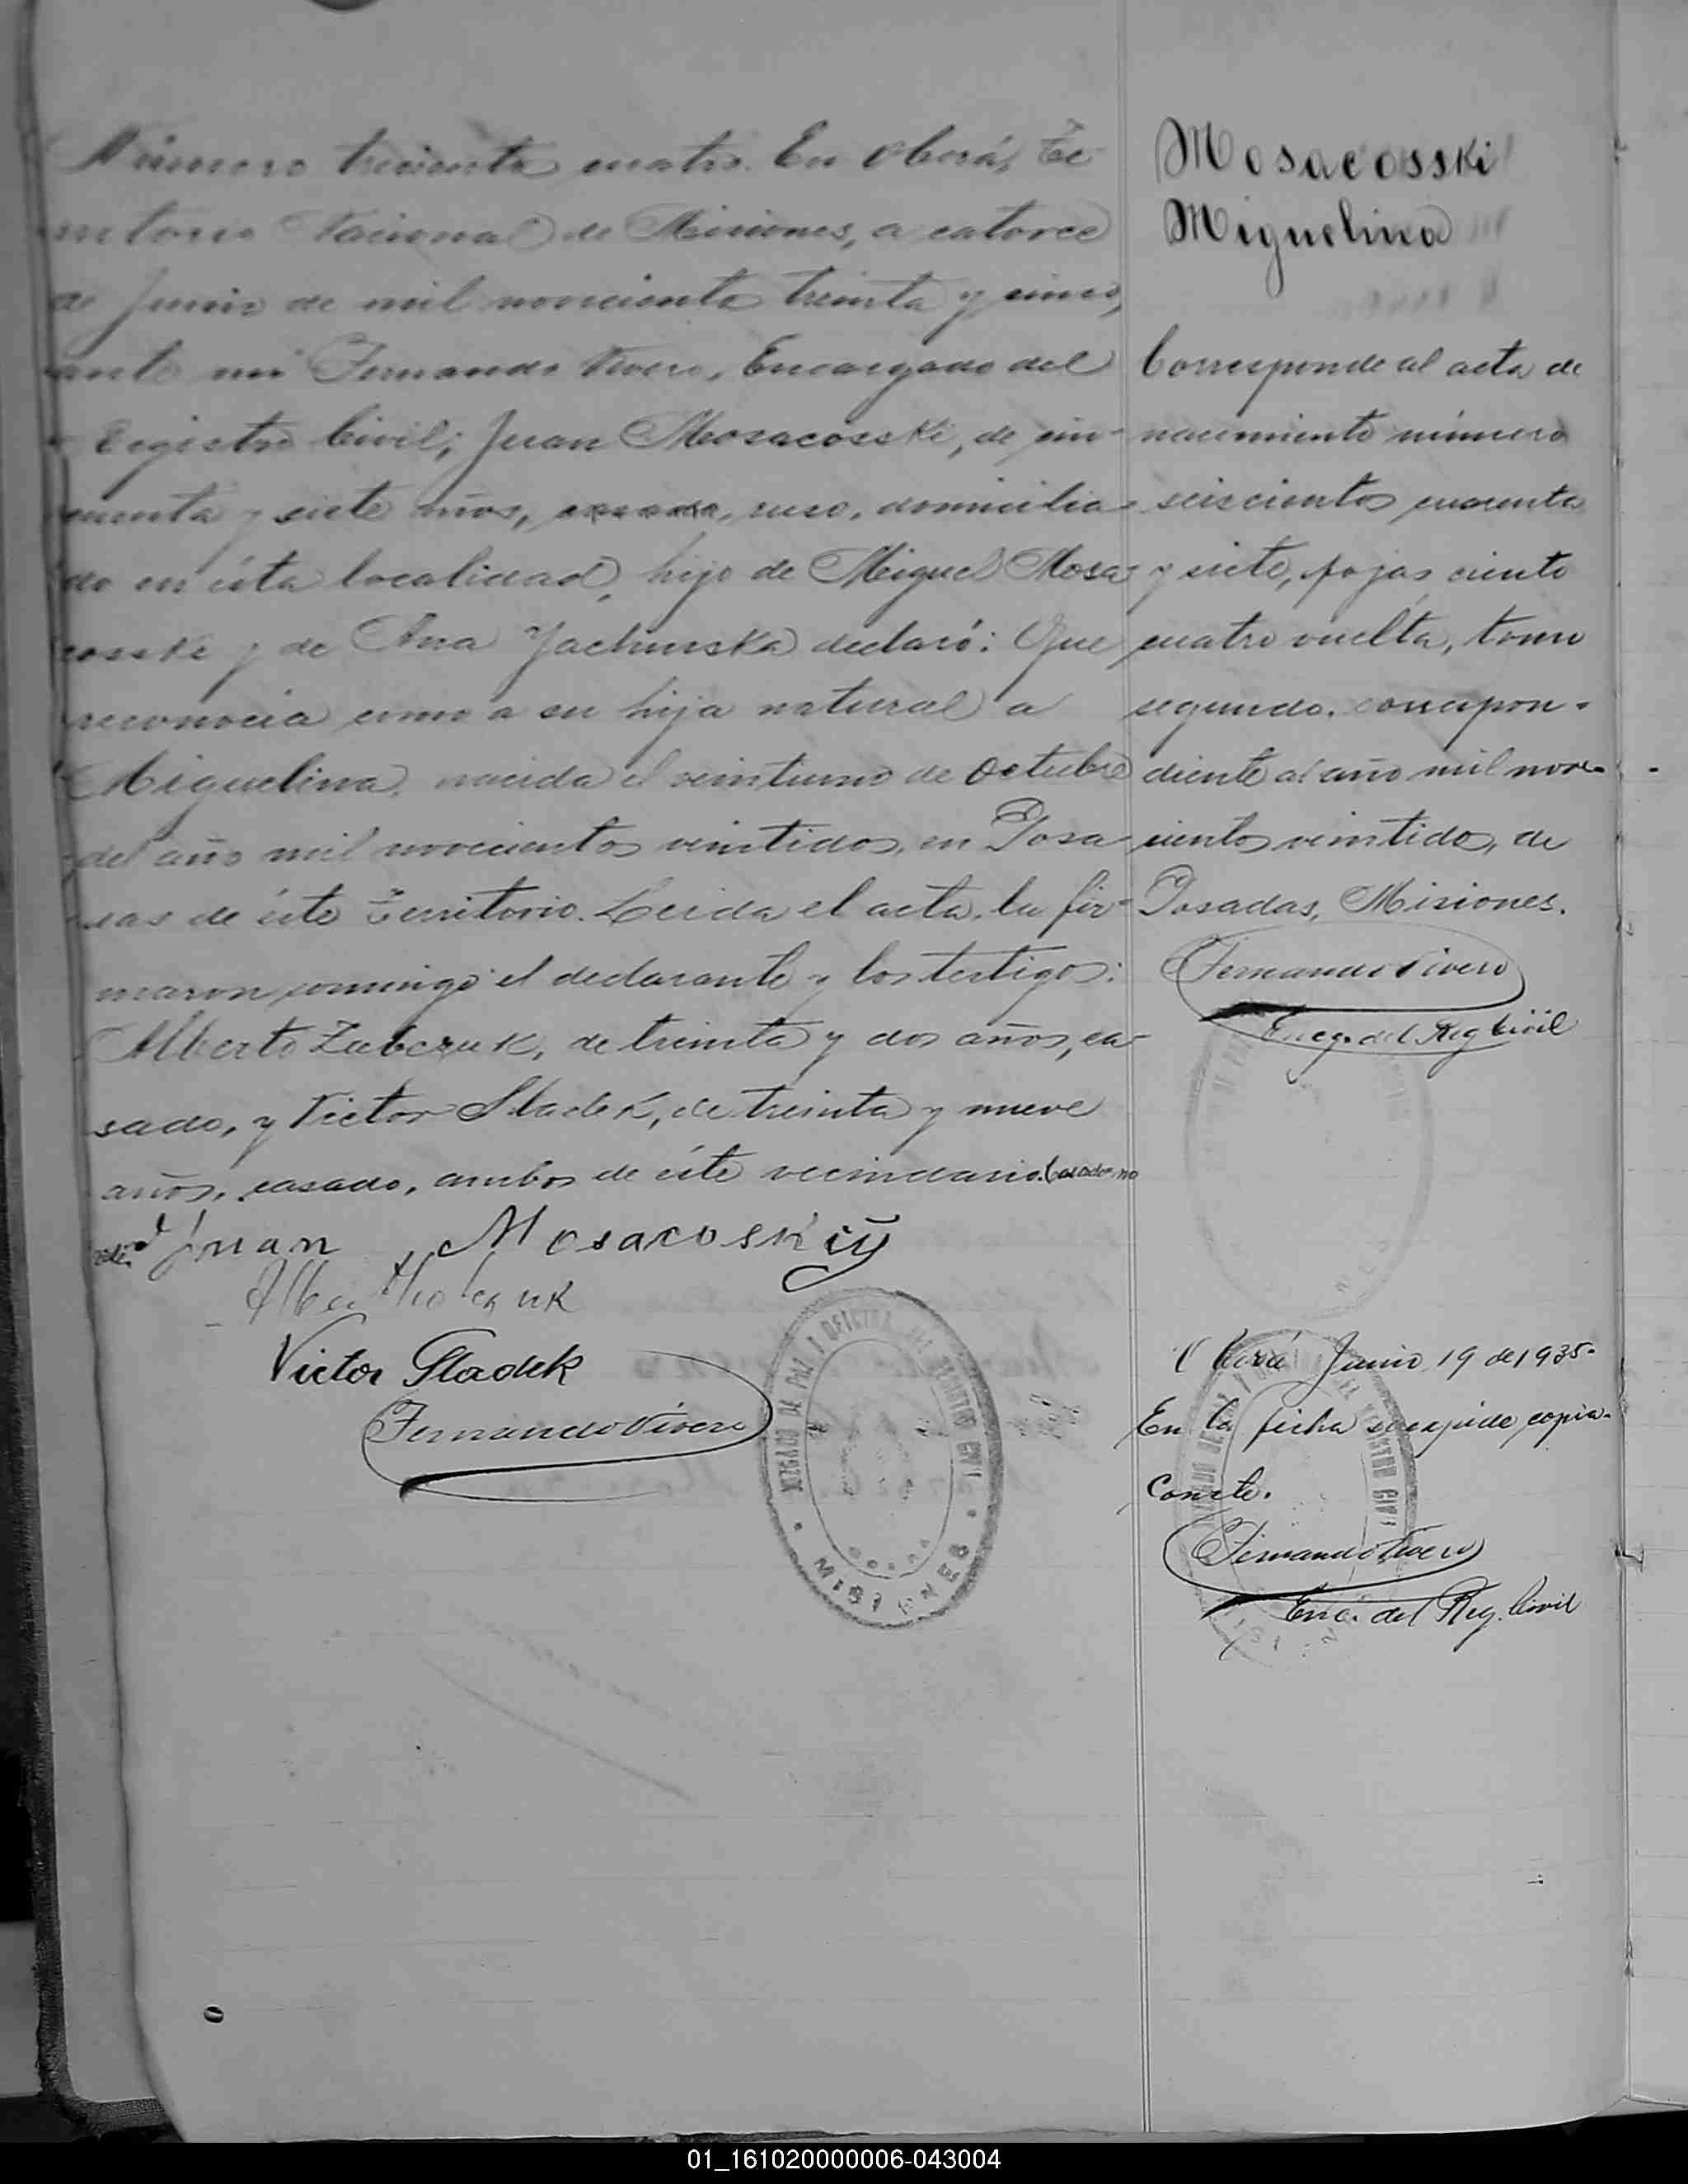 Número trescientos cuatro. En Oberá, Te-
rritorio Nacional de Misiones, a catorce
de Junio de mil novecientos treinta y cinco,
ante mí Fernando Vivero, Encargado del
Registro Civil; Juan Mosacosski, de cin-
cuenta y siete años, casado, ruso, domicilia-
do en ésta localidad, hijo de Miguel Mosa-
cosski y de Ana Jachurska declaró: Que
reconocía como a su hija natural a
Miguelina, nacida el veintiuno de Octubre
del año mil novecientos veintidos, en Posa-
das de éste Territorio. Leida el acta, la fir-
maron conmigo el declarante y los testigos:
Alberto Zubczuk, de treinta y dos años, ca-
sado, y Victor Sladek, de treinta y nueve
años, casado, ambos de éste vecindario. (casado-no
Juan Mosacoskiy
Victor Sladek
Fernando Vivero
JUZGADO DE PAZ Y OFICINA DEL REGISTRO CIVIL
MISIONES
Mosacosski
Miguelina
Corresponde al acta de
nacimiento número
seiscientos cuarenta
y siete, fojas ciento
cuatro vuelta, tomo
segundo, correspon-
diente al año mil nove-
cientos veintidos, de
Posadas, Misiones.
Fernando Vivero
Encg. del Reg Civil
Oberá Junio 19 de 1935.
En la fecha se expide copia.
Conste.
Fernando Vivero
Enc. del Reg. Civil
01_161020000006-043004